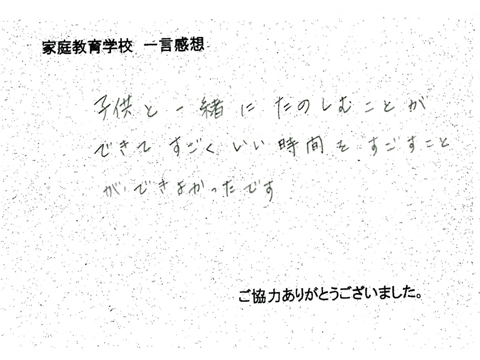 家庭教育学校 一言感想
子供と一緒にたのしむことが
できてすごくいい時間をすごすこと
ができよかったです
ご協力ありがとうございました。